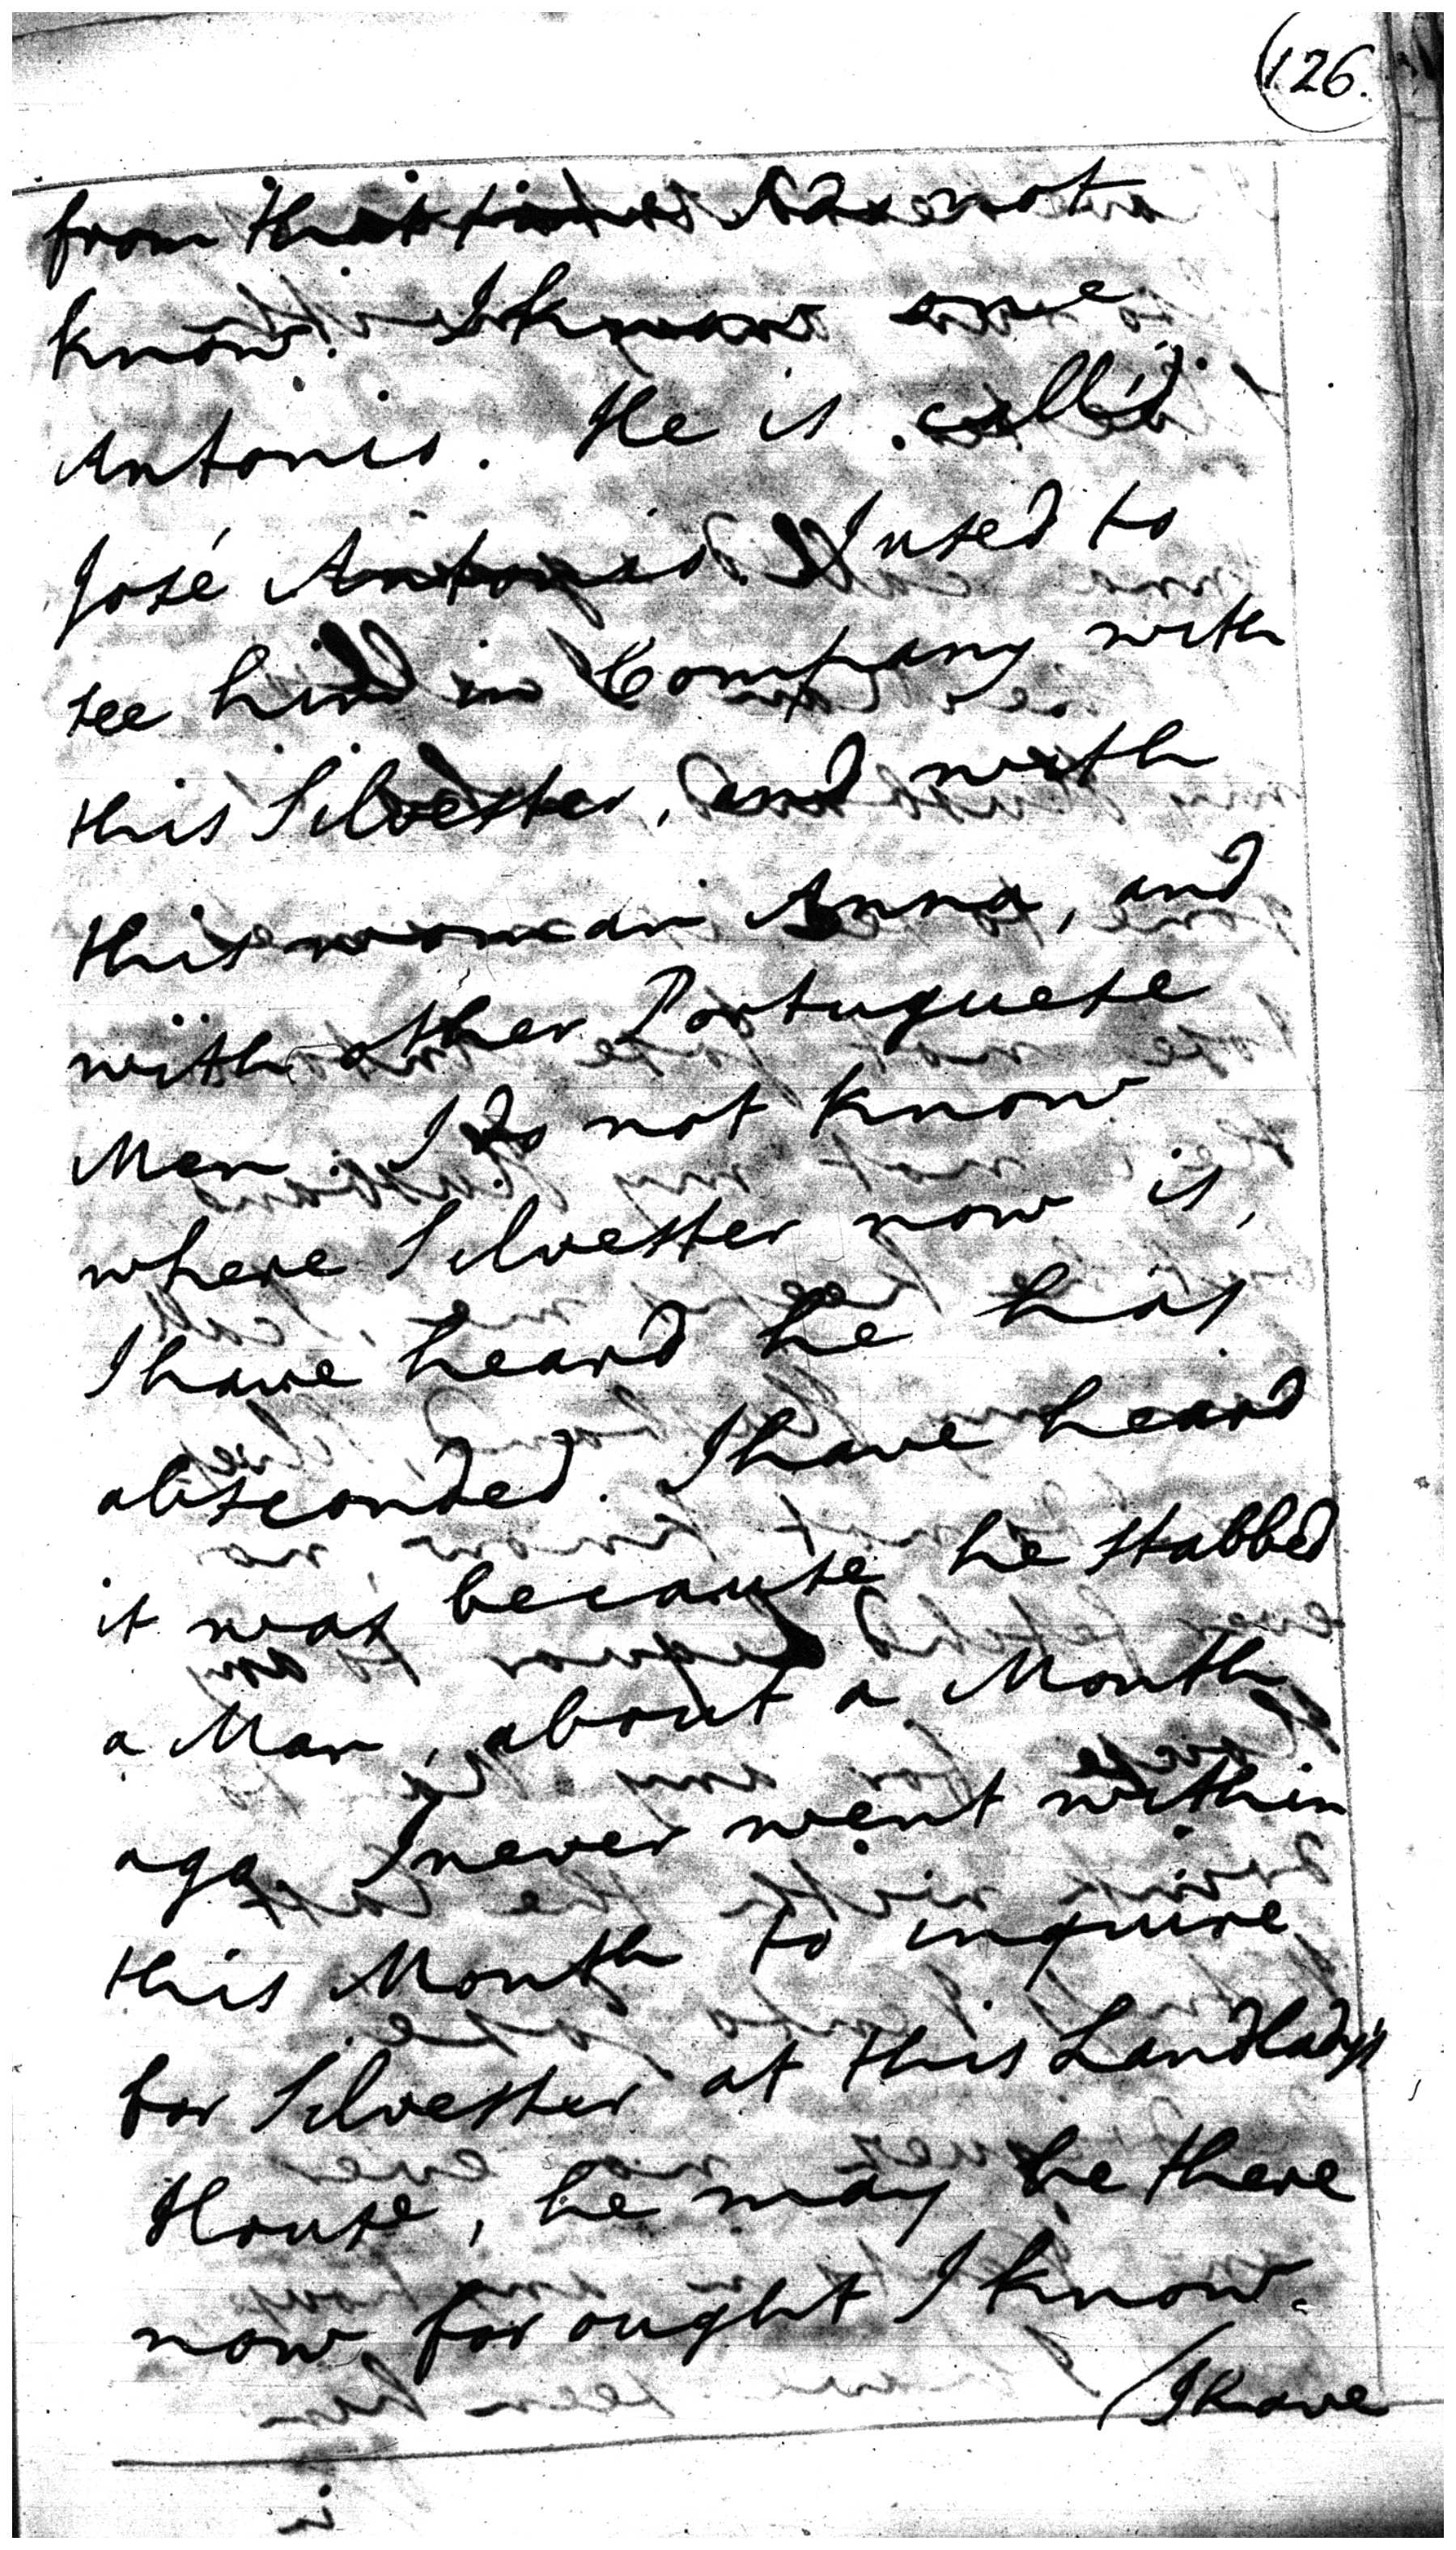 (126.
from that time I do not
know. I know one
Antonio. He is call'd
José Antonio. I used to
see him in Company with
this Silvester, and with
this woman Anna, and
with other Portuguese
Men. I do not know
where Silvester now is,
I have heard he has
absconded. I have heard
it was because he stabbed
a Man, about a Month
ago. I never went within
this Month to inquire
for Silvester at this Landlady's
House, he may be there
now for ought I know.
(I have